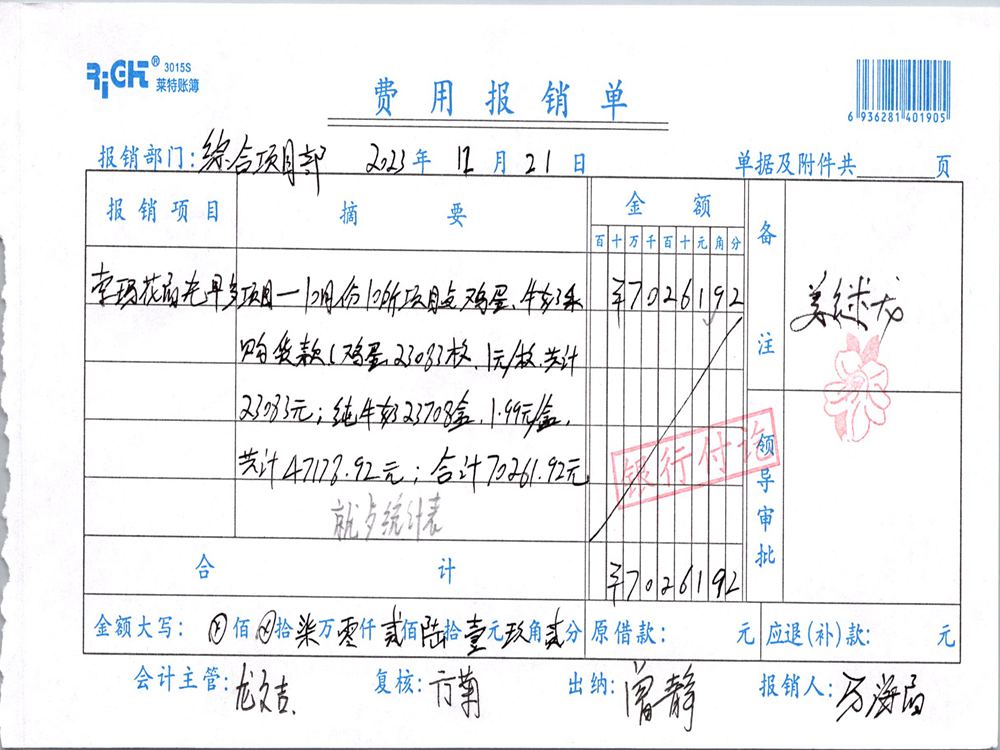 RiGHT® 3015S
莱特账簿
费用报销单
6 936281 401905
报销部门:综合项目部 2023年 12月21日 单据及附件共 页
报销项目 摘要 金额 备注
百十万千百十元角分
索玛花 项目—10月份10所项目点鸡蛋、牛奶采 ¥7026192
购货款(鸡蛋23083枚、1元/枚,共计
23083元;纯牛奶23708盒,1.99元/盒,
共计47178.92元;合计70261.92元
就步统计表
银行付讫
领导审批
合计 ¥7026192
金额大写: ⊗佰⊗拾柒万零仟贰佰陆拾壹元玖角贰分 原借款: 元 应退(补)款: 元
会计主管:龙文吉 复核:方菊 出纳:曾静 报销人:万海